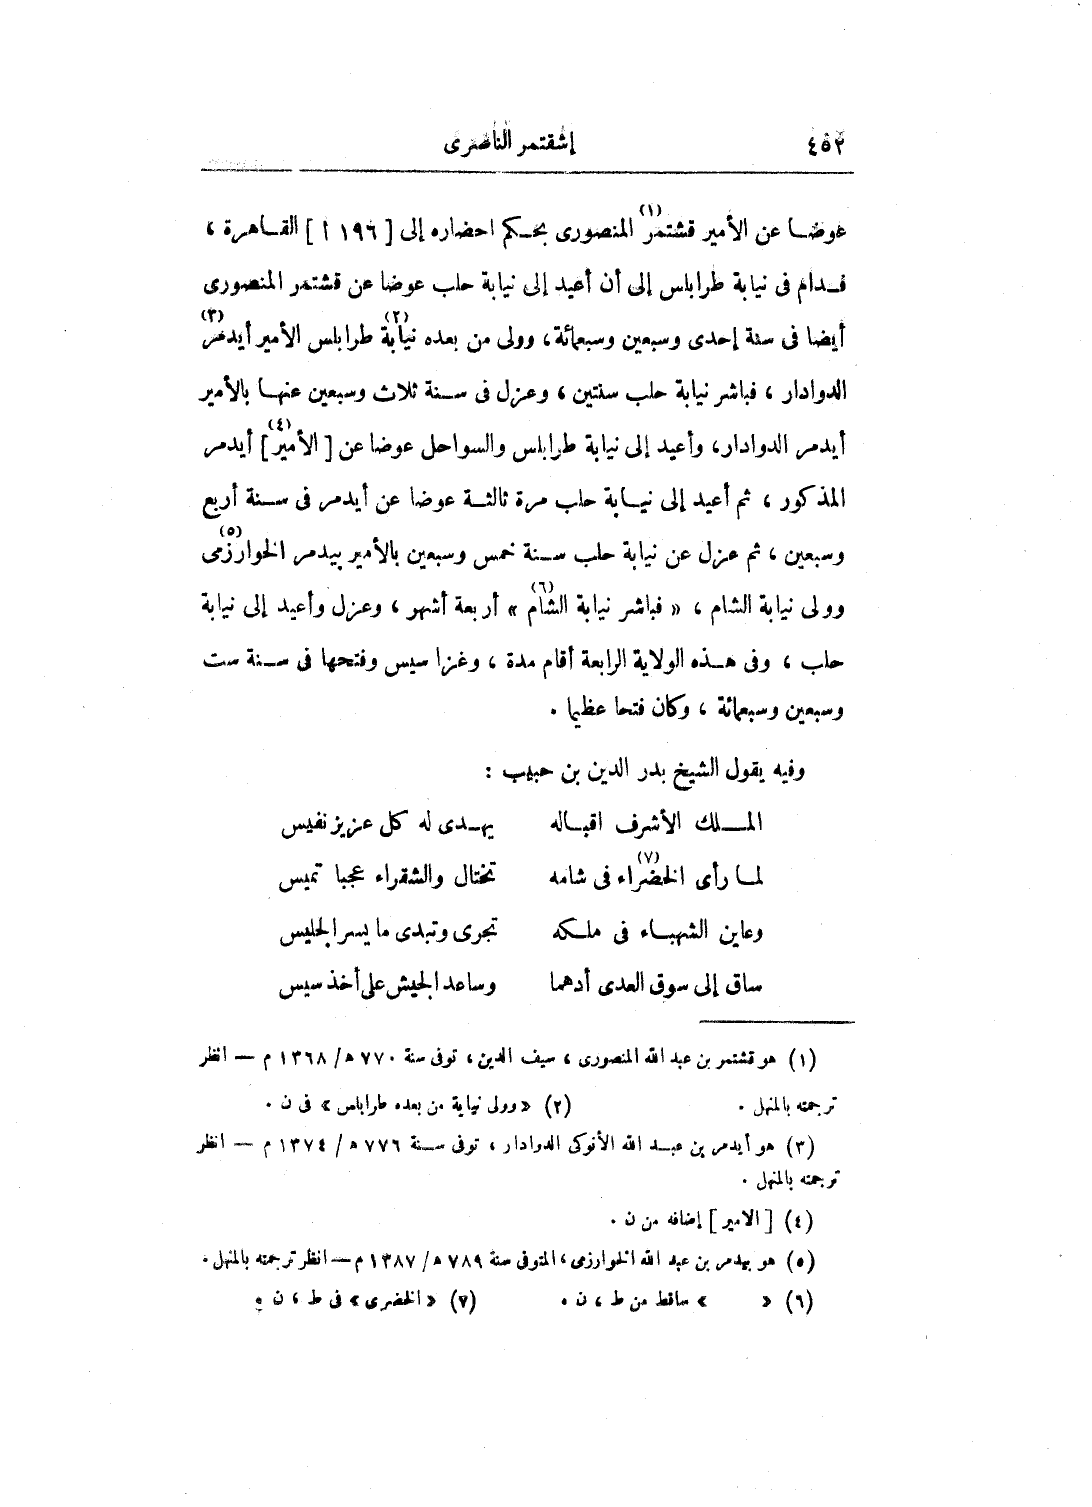 ٤٥٢ إشقتمر الناصرى
عوضا عن الأمير قشتمر(١) المنصورى بحكم احضاره إلى [ ١٩٦ أ ] القاهرة ،
فدام فى نيابة طرابلس إلى أن أعيد إلى نيابة حلب عوضا عن قشتمر المنصورى
أيضا فى سنة إحدى وسبعين وسبعمائة ، وولى من بعده نيابة(٢) طرابلس الأمير أيدمر(٣)
الدوادار ، فباشر نيابة حلب سنتين ، وعزل فى سنة ثلاث وسبعين عنها بالأمير
أيدمر الدوادار ، وأعيد إلى نيابة طرابلس والسواحل عوضا عن [ الأمير(٤) ] أيدمر
المذكور ، ثم أعيد إلى نيابة حلب مرة ثالثة عوضا عن أيدمر فى سنة أربع
وسبعين ، ثم عزل عن نيابة حلب سنة خمس وسبعين بالأمير بيدمر الخوارزمى(٥)
وولى نيابة الشام ، « فباشر نيابة الشام(٦) » أربعة أشهر ، وعزل وأعيد إلى نيابة
حلب ، وفى هذه الولاية الرابعة أقام مدة ، وغزا سيس وفتحها فى سنة ست
وسبعين وسبعمائة ، وكان فتحا عظيما .
وفيه يقول الشيخ بدر الدين بن حبيب :
الملك الأشرف اقباله يهدى له كل عزيز نفيس
لما رأى الخضراء(٧) فى شامه تختال والشقراء عجبا تميس
وعاين الشهباء فى ملكه تجرى وتبدى ما يسر الجليس
ساق إلى سوق العدى أدهما وساعد الجيش على أخذ سيس
(١) هو قشتمر بن عبد الله المنصورى ، سيف الدين ، توفى سنة ٧٧٠ ه/ ١٣٦٨ م — انظر
ترجمته بالمنهل . (٢) « وولى نيابة من بعده طرابلس » فى ن .
(٣) هو أيدمر بن عبد الله الأنوكى الدوادار ، توفى سنة ٧٧٦ ه / ١٣٧٤ م — انظر
ترجمته بالمنهل .
(٤) [ الامير ] إضافه من ن .
(٥) هو بيدمر بن عبد الله الخوارزمى ، المتوفى سنة ٧٨٩ ه/ ١٣٨٧ م — انظر ترجمته بالمنهل .
(٦) « » ساقط من ط ، ن . (٧) « الخضرى » فى ط ، ن .